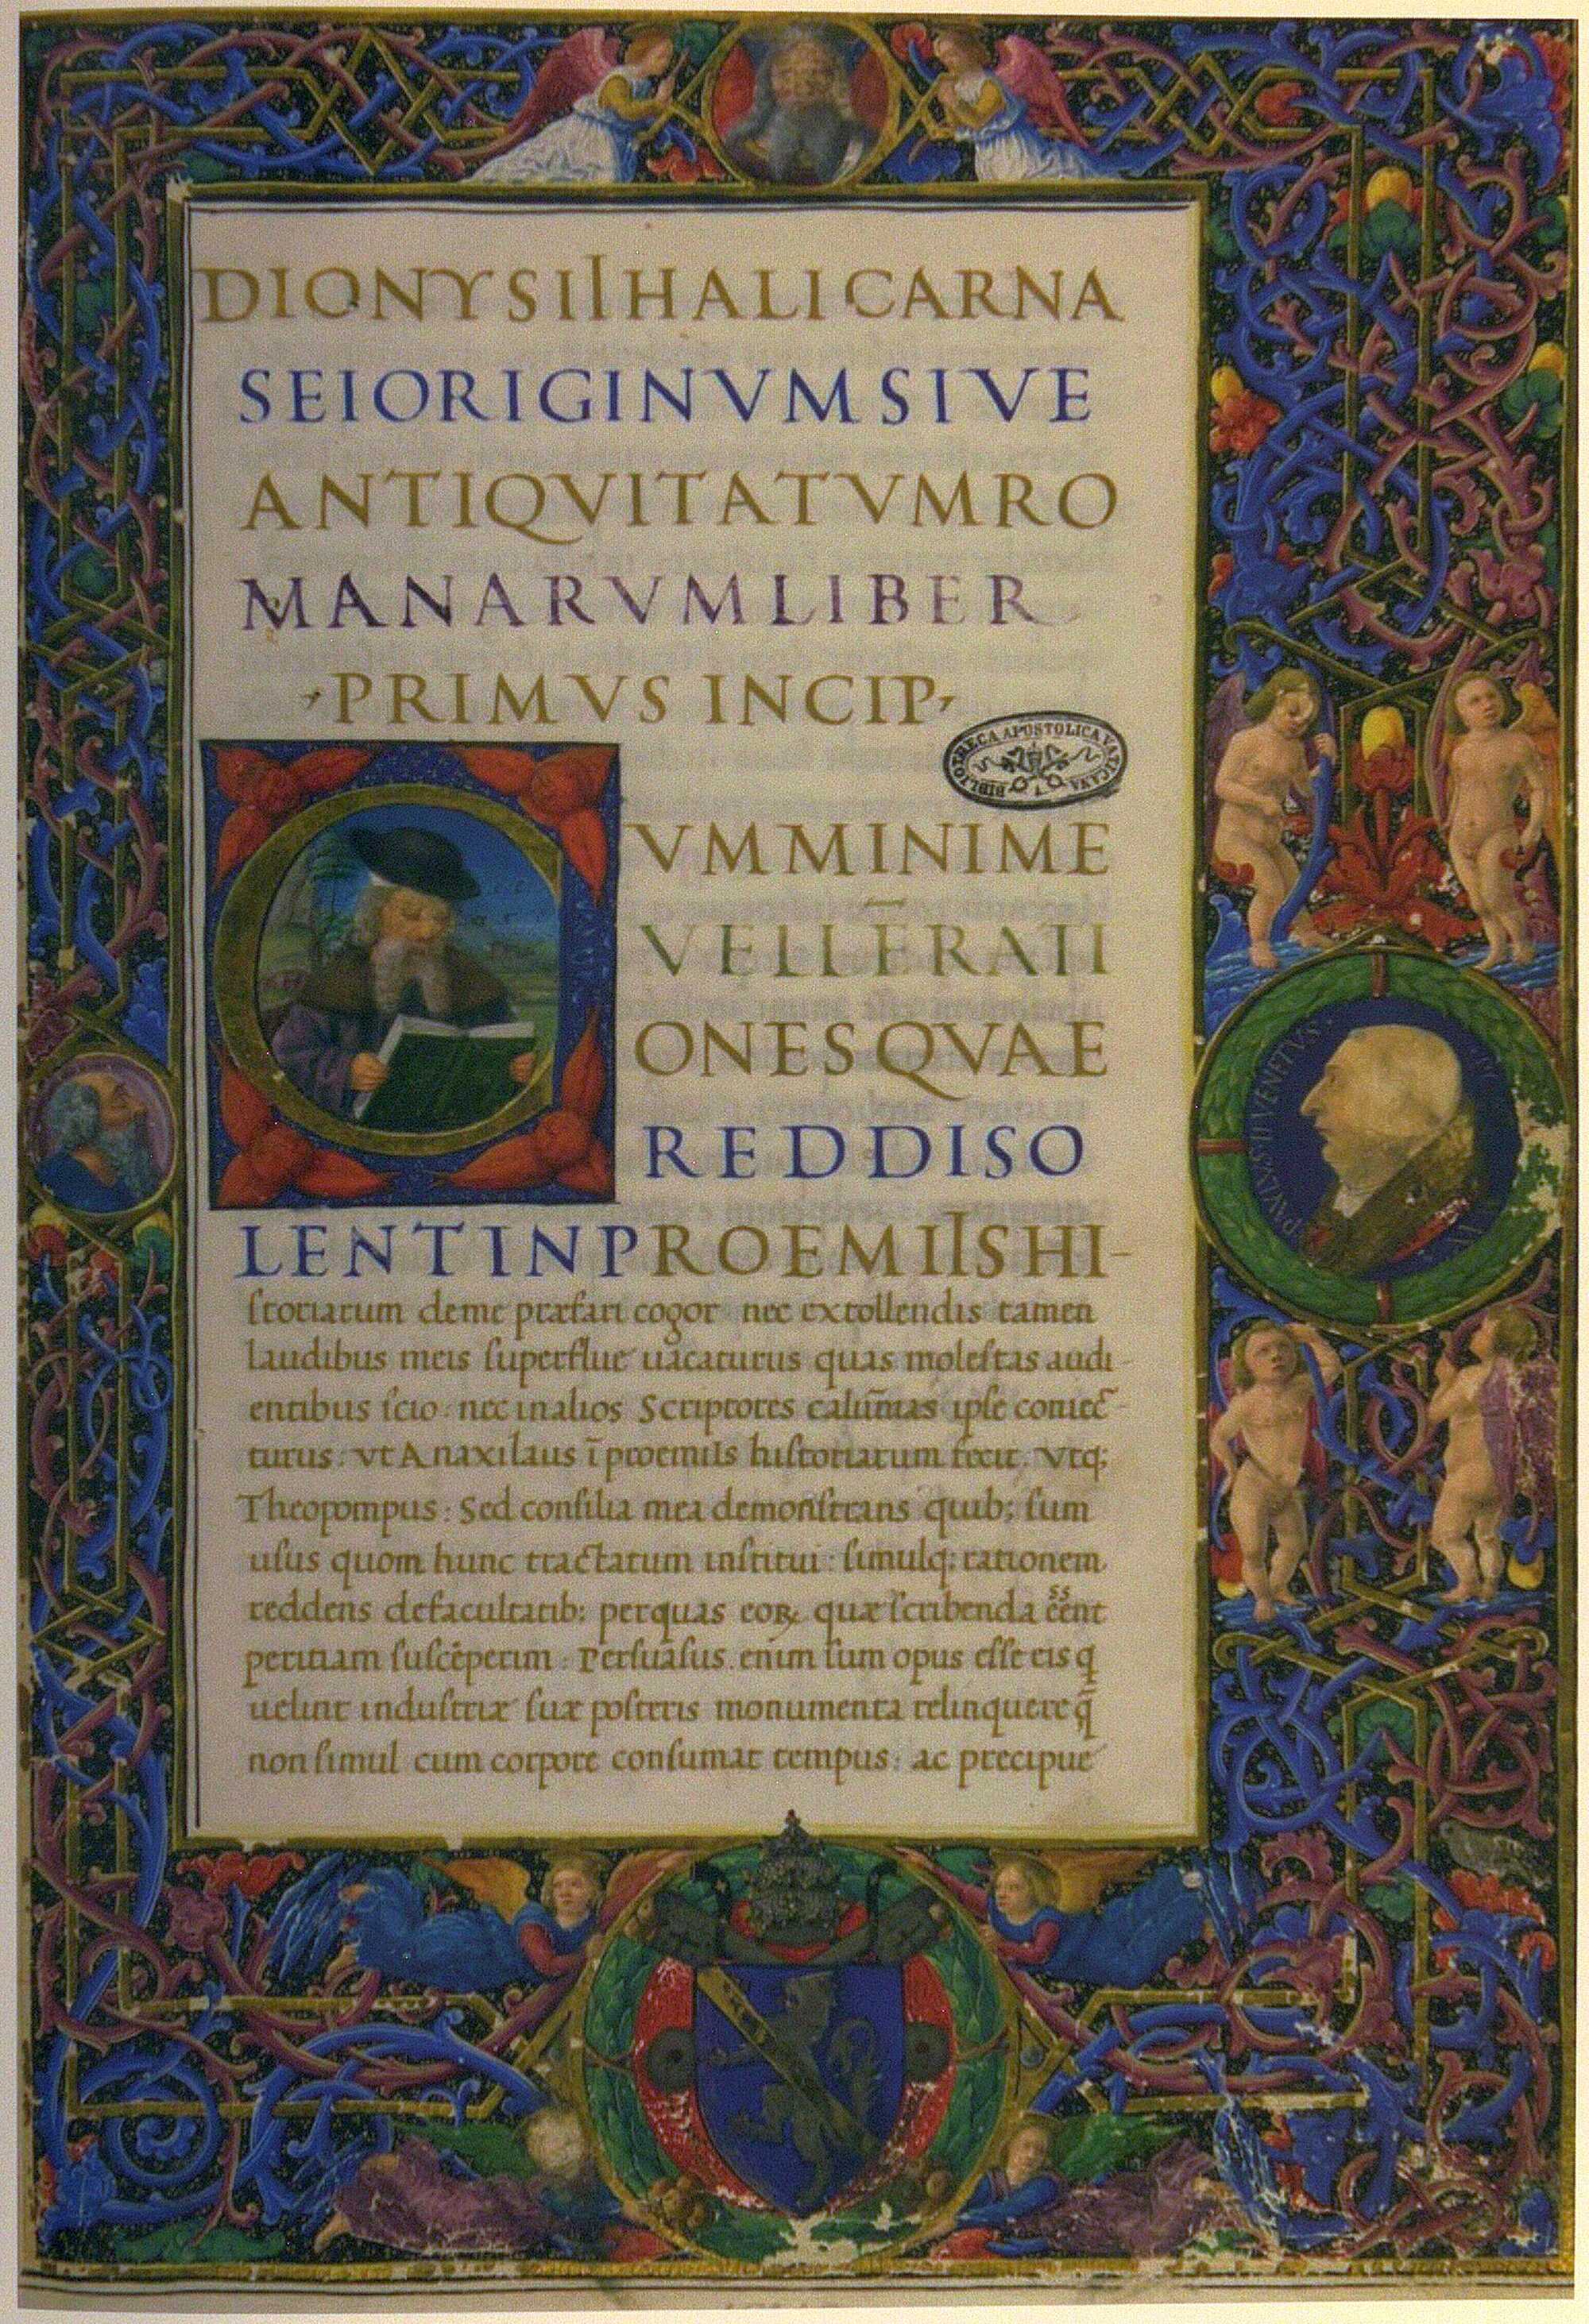 DIONYSII HALICARNA
SEI ORIGINVM SIVE
ANTIQVITATVM RO
MANARVM LIBER
PRIMVS INCIP
BIBLIOTHECA APOSTOLICA VATICANA
VM MINIME
VELLĒ RATI
ONES QVAE
REDDI SO
LENT IN PROEMIIS HI-
ſtoriarum de me præfari cogor nec extollendis tamen
laudibus meis ſuperflue uacaturus quas moleſtas audi-
entibus ſcio: nec in alios Scriptores calūnias ipſe coniec-
turus: vt Anaxilaus ī proemiis hiſtoriarum fecit. Vtq;
Theopompus: Sed conſilia mea demonſtrans quib; ſum
uſus quom hunc tractatum inſtitui: ſimulq; rationem
reddens de facultatib: per quas eoꝝ quæ ſcribenda eēnt
peritiam ſuſceperim: Perſuaſus enim ſum opus eſſe eis q
uelint induſtriæ ſuæ poſteris monumenta relinquere q̄
non ſimul cum corpore conſumat tempus: ac precipue
PAVLVS II VENETVS